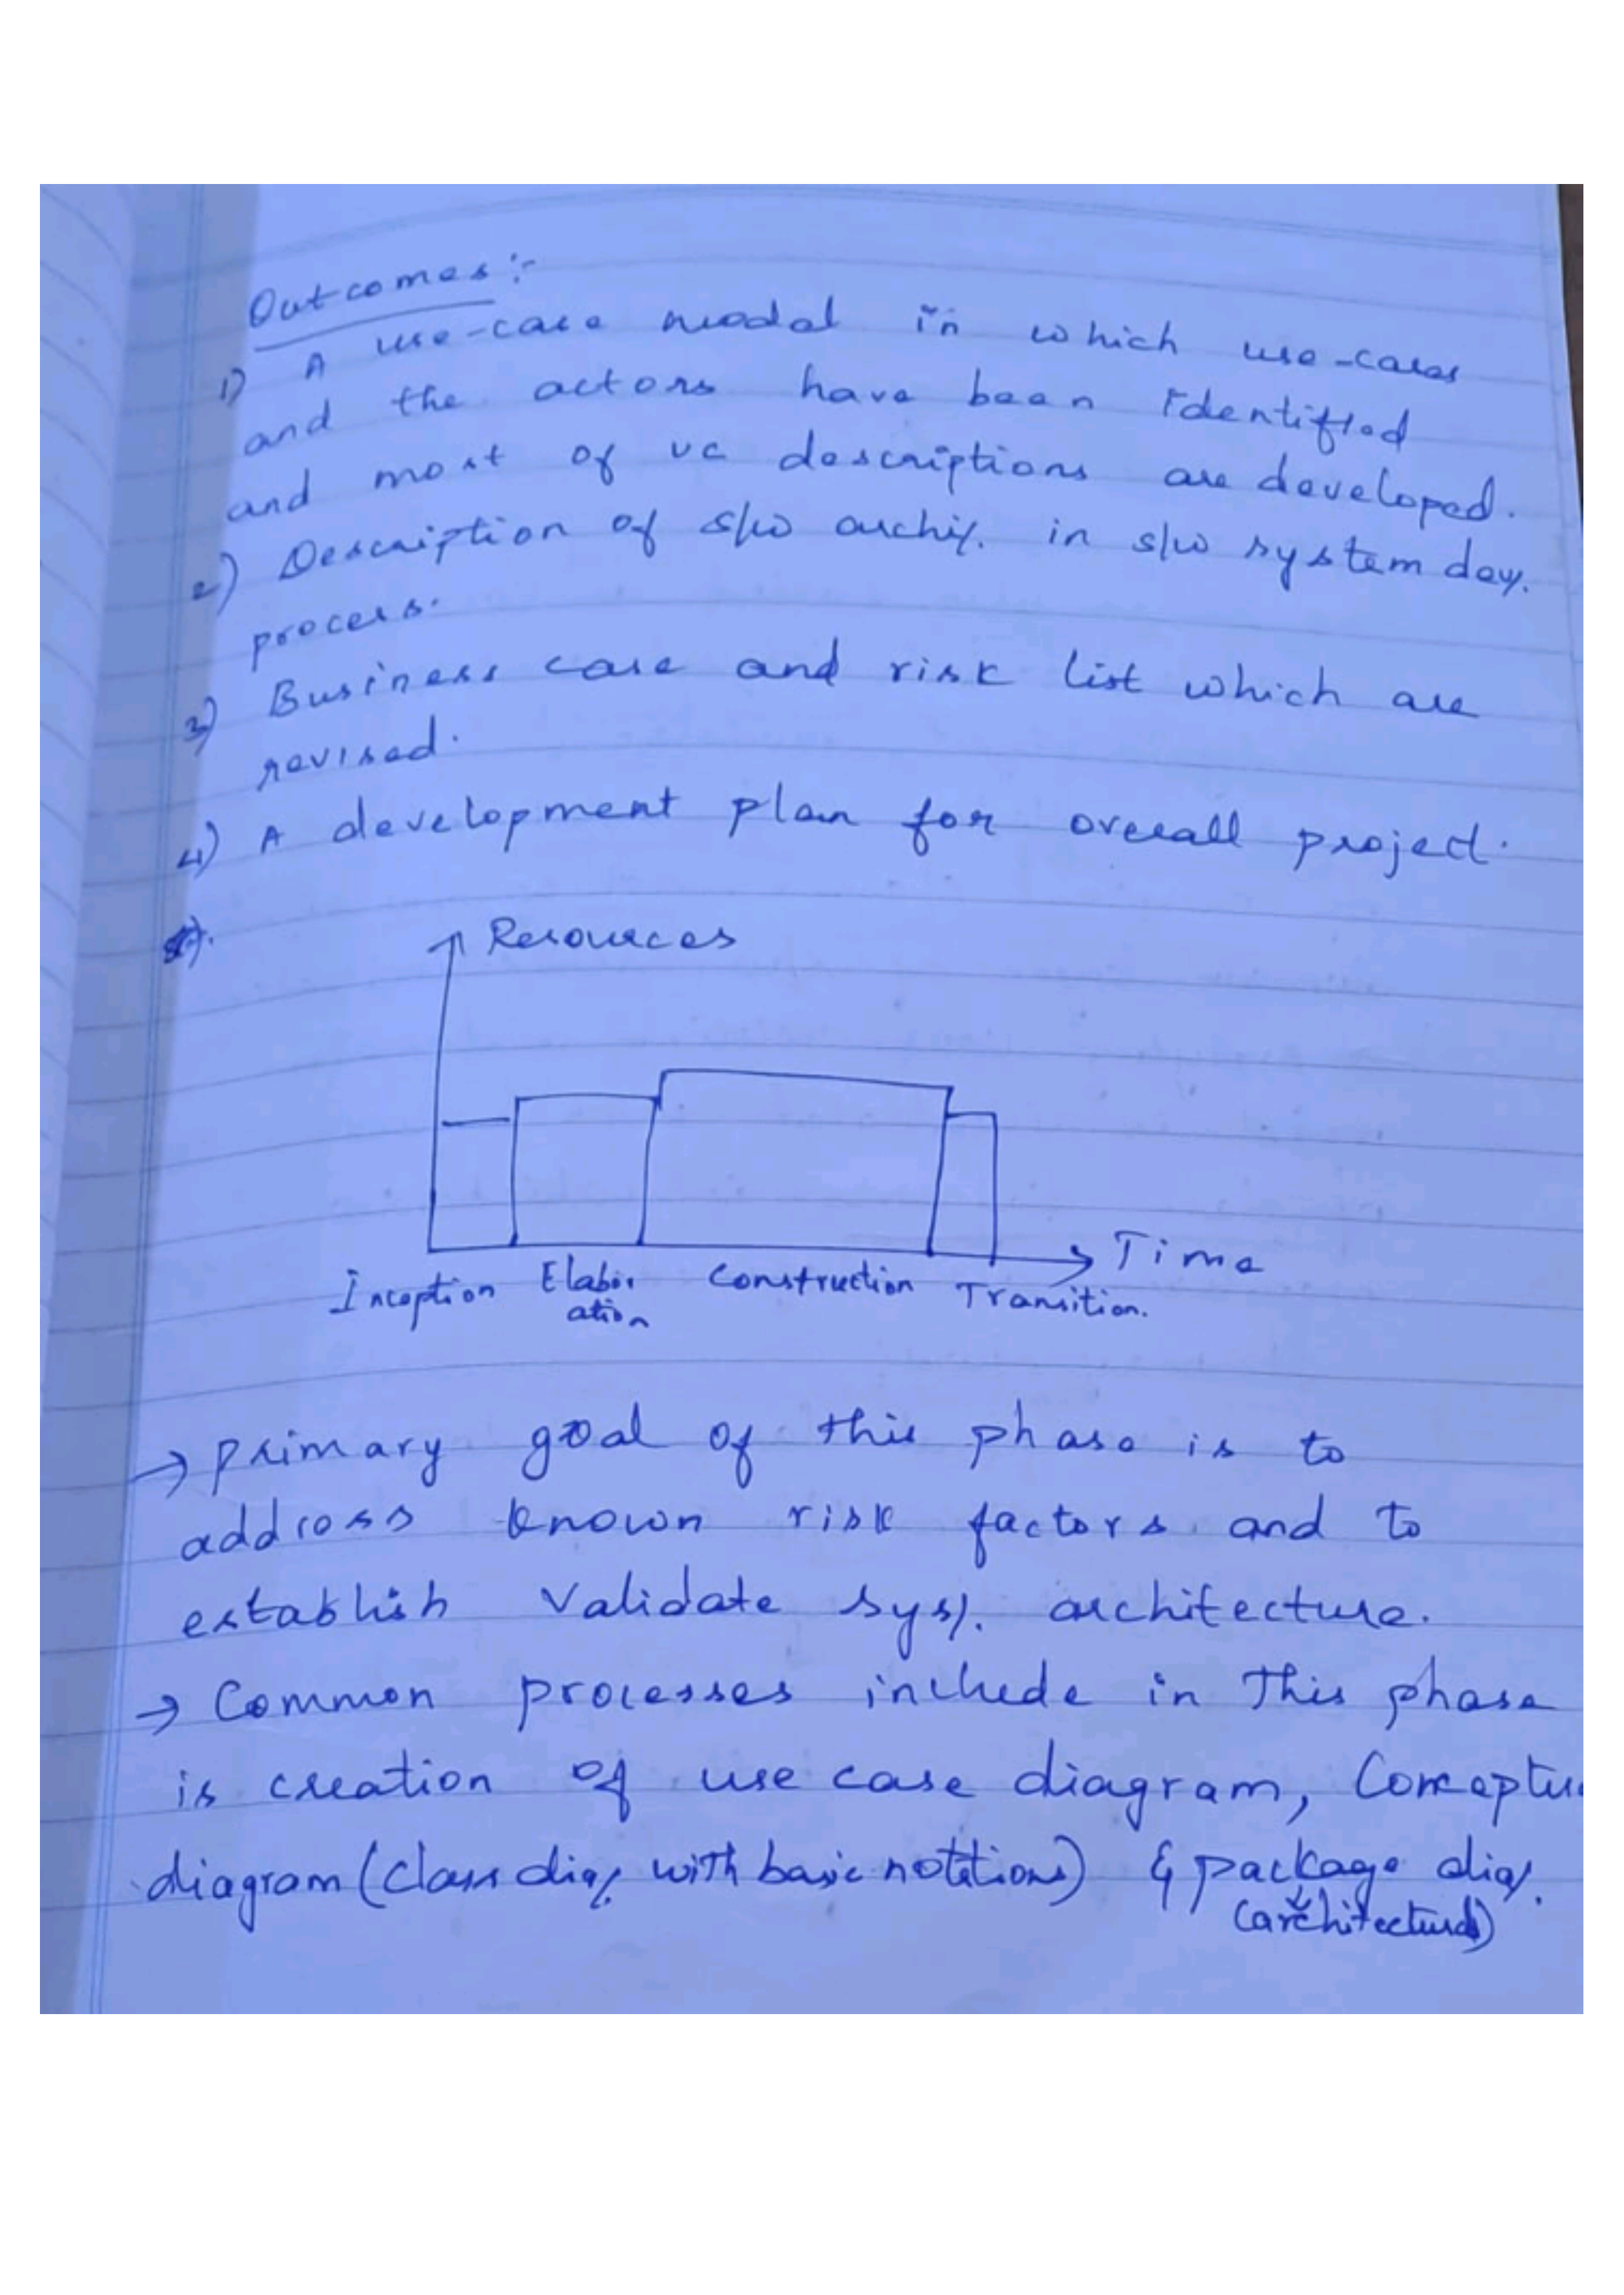 Outcomes:-
1) A use-case model in which use-cases
and the actors have been identified
and most of uc descriptions are developed.
2) Description of s/w archi. in s/w system dev.
process.
3) Business case and risk list which are
revised.
4) A development plan for overall project.
Resources
Time
Inception Elabor Construction Transition.
ation
→ Primary goal of this phase is to
address known risk factors and to
establish validate sys. architecture.
→ Common processes include in This phase
is creation of use case diagram, Conceptu
diagram (Class diag. with basic notations) & package diag.
(architectural)